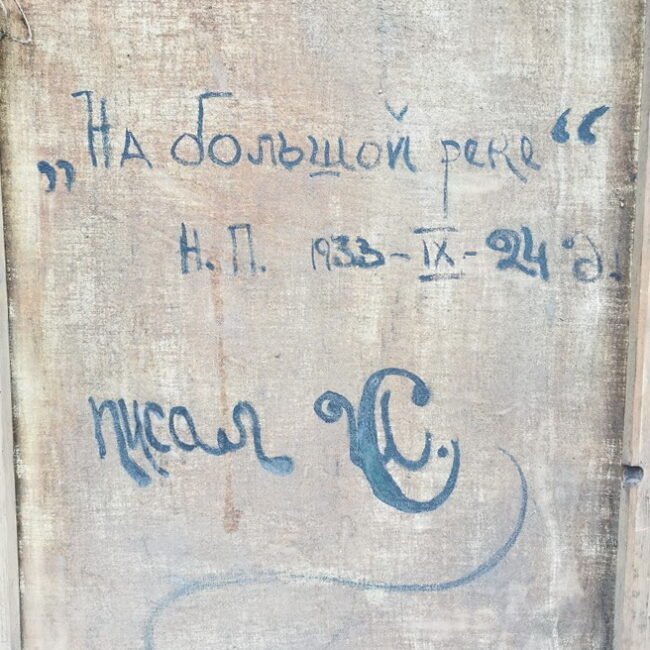 „На большой реке“
Н. П. 1933-IX-24 д.
писал